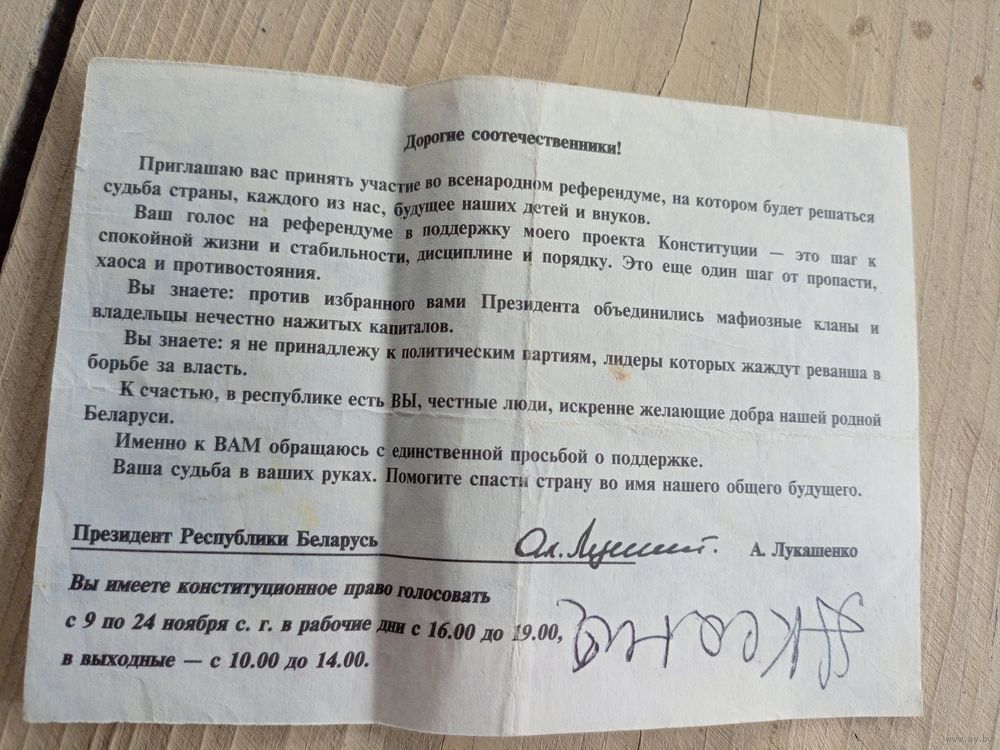 Дорогие соотечественники!
Приглашаю вас принять участие во всенародном референдуме, на котором будет решаться
судьба страны, каждого из нас, будущее наших детей и внуков.
Ваш голос на референдуме в поддержку моего проекта Конституции — это шаг к
спокойной жизни и стабильности, дисциплине и порядку. Это еще один шаг от пропасти,
хаоса и противостояния.
Вы знаете: против избранного вами Президента объединились мафиозные кланы и
владельцы нечестно нажитых капиталов.
Вы знаете: я не принадлежу к политическим партиям, лидеры которых жаждут реванша в
борьбе за власть.
К счастью, в республике есть ВЫ, честные люди, искренне желающие добра нашей родной
Беларуси.
Именно к ВАМ обращаюсь с единственной просьбой о поддержке.
Ваша судьба в ваших руках. Помогите спасти страну во имя нашего общего будущего.
Президент Республики Беларусь А. Лукашенко
Вы имеете конституционное право голосовать
с 9 по 24 ноября с. г. в рабочие дни с 16.00 до 19.00,
в выходные — с 10.00 до 14.00.
www.ay.by